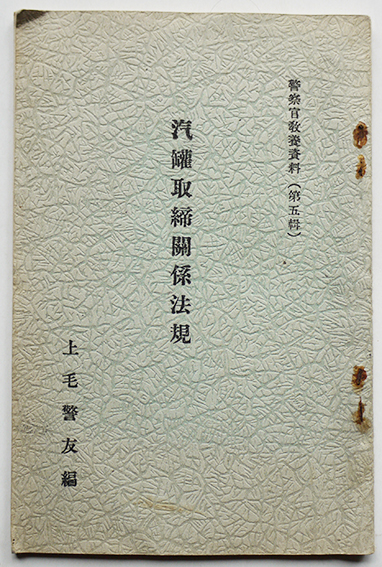 警察官敎養資料（第五輯）
汽罐取締關係法規
上毛警友編